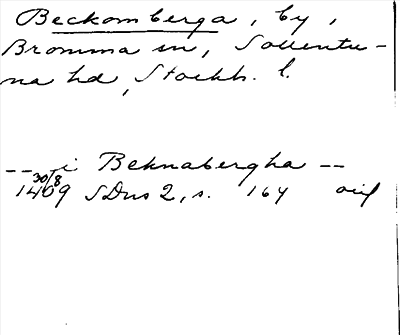 Beckomberga, by,
Bromma sn, Sollentu-
na hd, Stockh. l.
-- i Beknabergha --
30/8
1409 SDns 2, s. 164 oiif